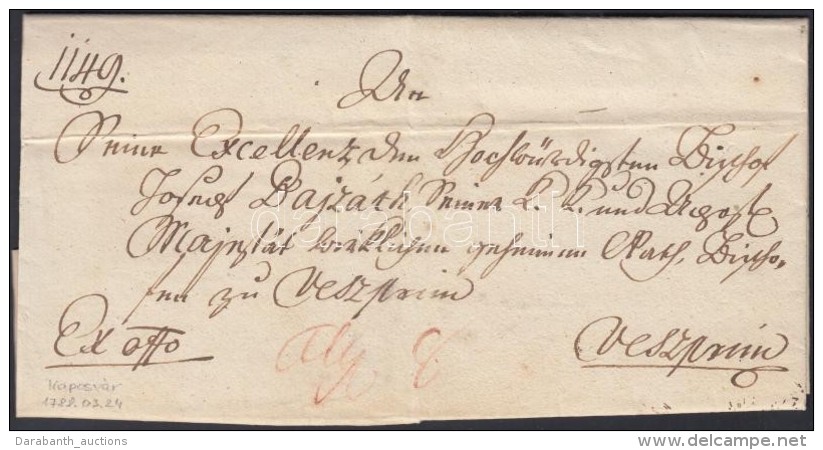 1149.
An
Seine Excellenz den Hochwürdigsten Bischof
Joseph Bajzáth Seiner K. K. und Apost
Majestät wirklichen geheimen Rath, Bischo-
fen zu Veszprim
Ex offo
Veszprim
Kaposvár
1788.03.24
darabanth
Darabanth_auctions
www.delcampe.net